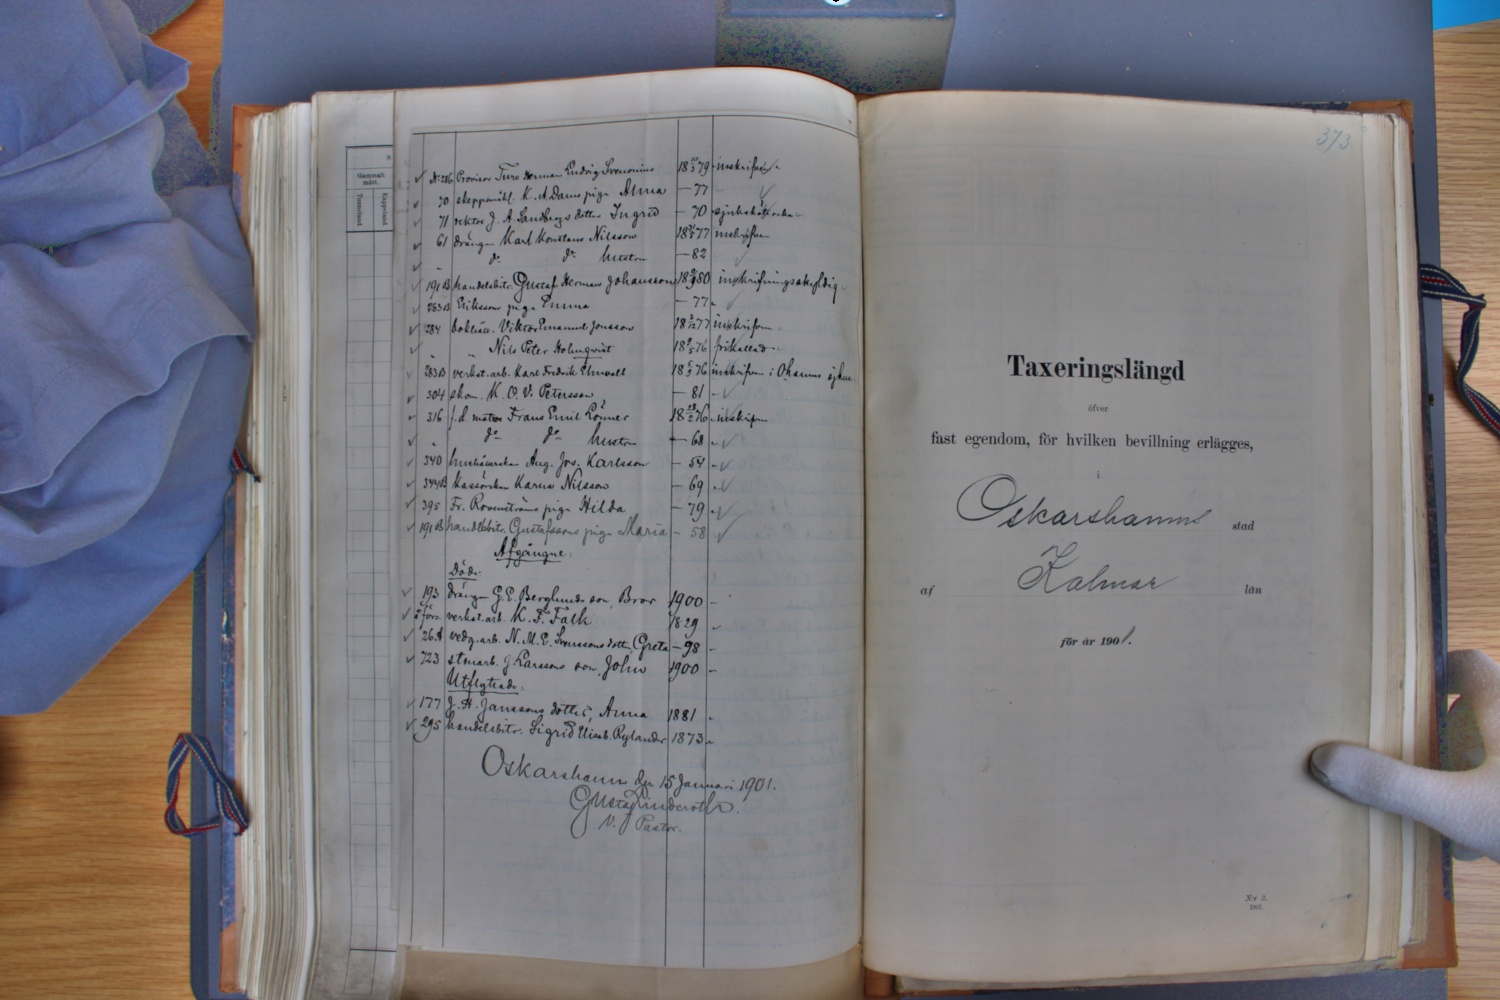 Gammalt
mått.
Tunneland
Kappeland
№ 286 Provisor Ture Herman Ludvig Svenonius 18 79 inskrifven
70 skeppsmäkl. K. A. Dams piga Anna – 77
71 rektor J. A. Sandbergs dotter Ingrid – 70 sjuksköterska
61 drängen Karl Konstans Nilsson 18 77 inskrifven
" do do hustru – 82
191 B handelsbitr. Gustaf Herman Johansson 18 80 inskrifningsskyldig
283 B Erikssons piga Emma – 77
284 bokhåll. Viktor Emanuel Jonsson 18 77 inskrifven
" " Nils Peter Holmqvist 18 76 frikallad
283 B verkst.arb. Karl Fredrik 18 76 inskrifven i Oskamns
304 skom. K. O. V. Petersson – 81
316 f.d. Frans Emil Lönner 18 76 inskrifven
" do do hustru – 68
340 Aug. Jos. Karlsson – 54
344 B kassörskan Karin Nilsson – 69
395 Fr. Rosenströms piga Hilda – 79
191 B handelsbitr. Gustafssons piga Maria – 58
Afgångne:
Döde:
193 drängen G. E. Berglunds son, Bror 1900
verkst.arb. K. F. Falk 1829
26 A vedg.arb. N. M. E. Svenssons dotter, Greta – 98
723 stuarb. J. Larssons son, John 1900
Utflyttade:
177 J. A. Janssons dotter, Anna 1881
295 handelsbitr. Sigrid Elisab. Rylander 1873
Oskarshamn den 15 Januari 1901.
Gustaf Linderoth
V. Pastor.
373
Taxeringslängd
öfver
fast egendom, för hvilken bevillning erlägges,
i
Oskarshamns stad
af Kalmar län
för år 1901.
N:r 2.